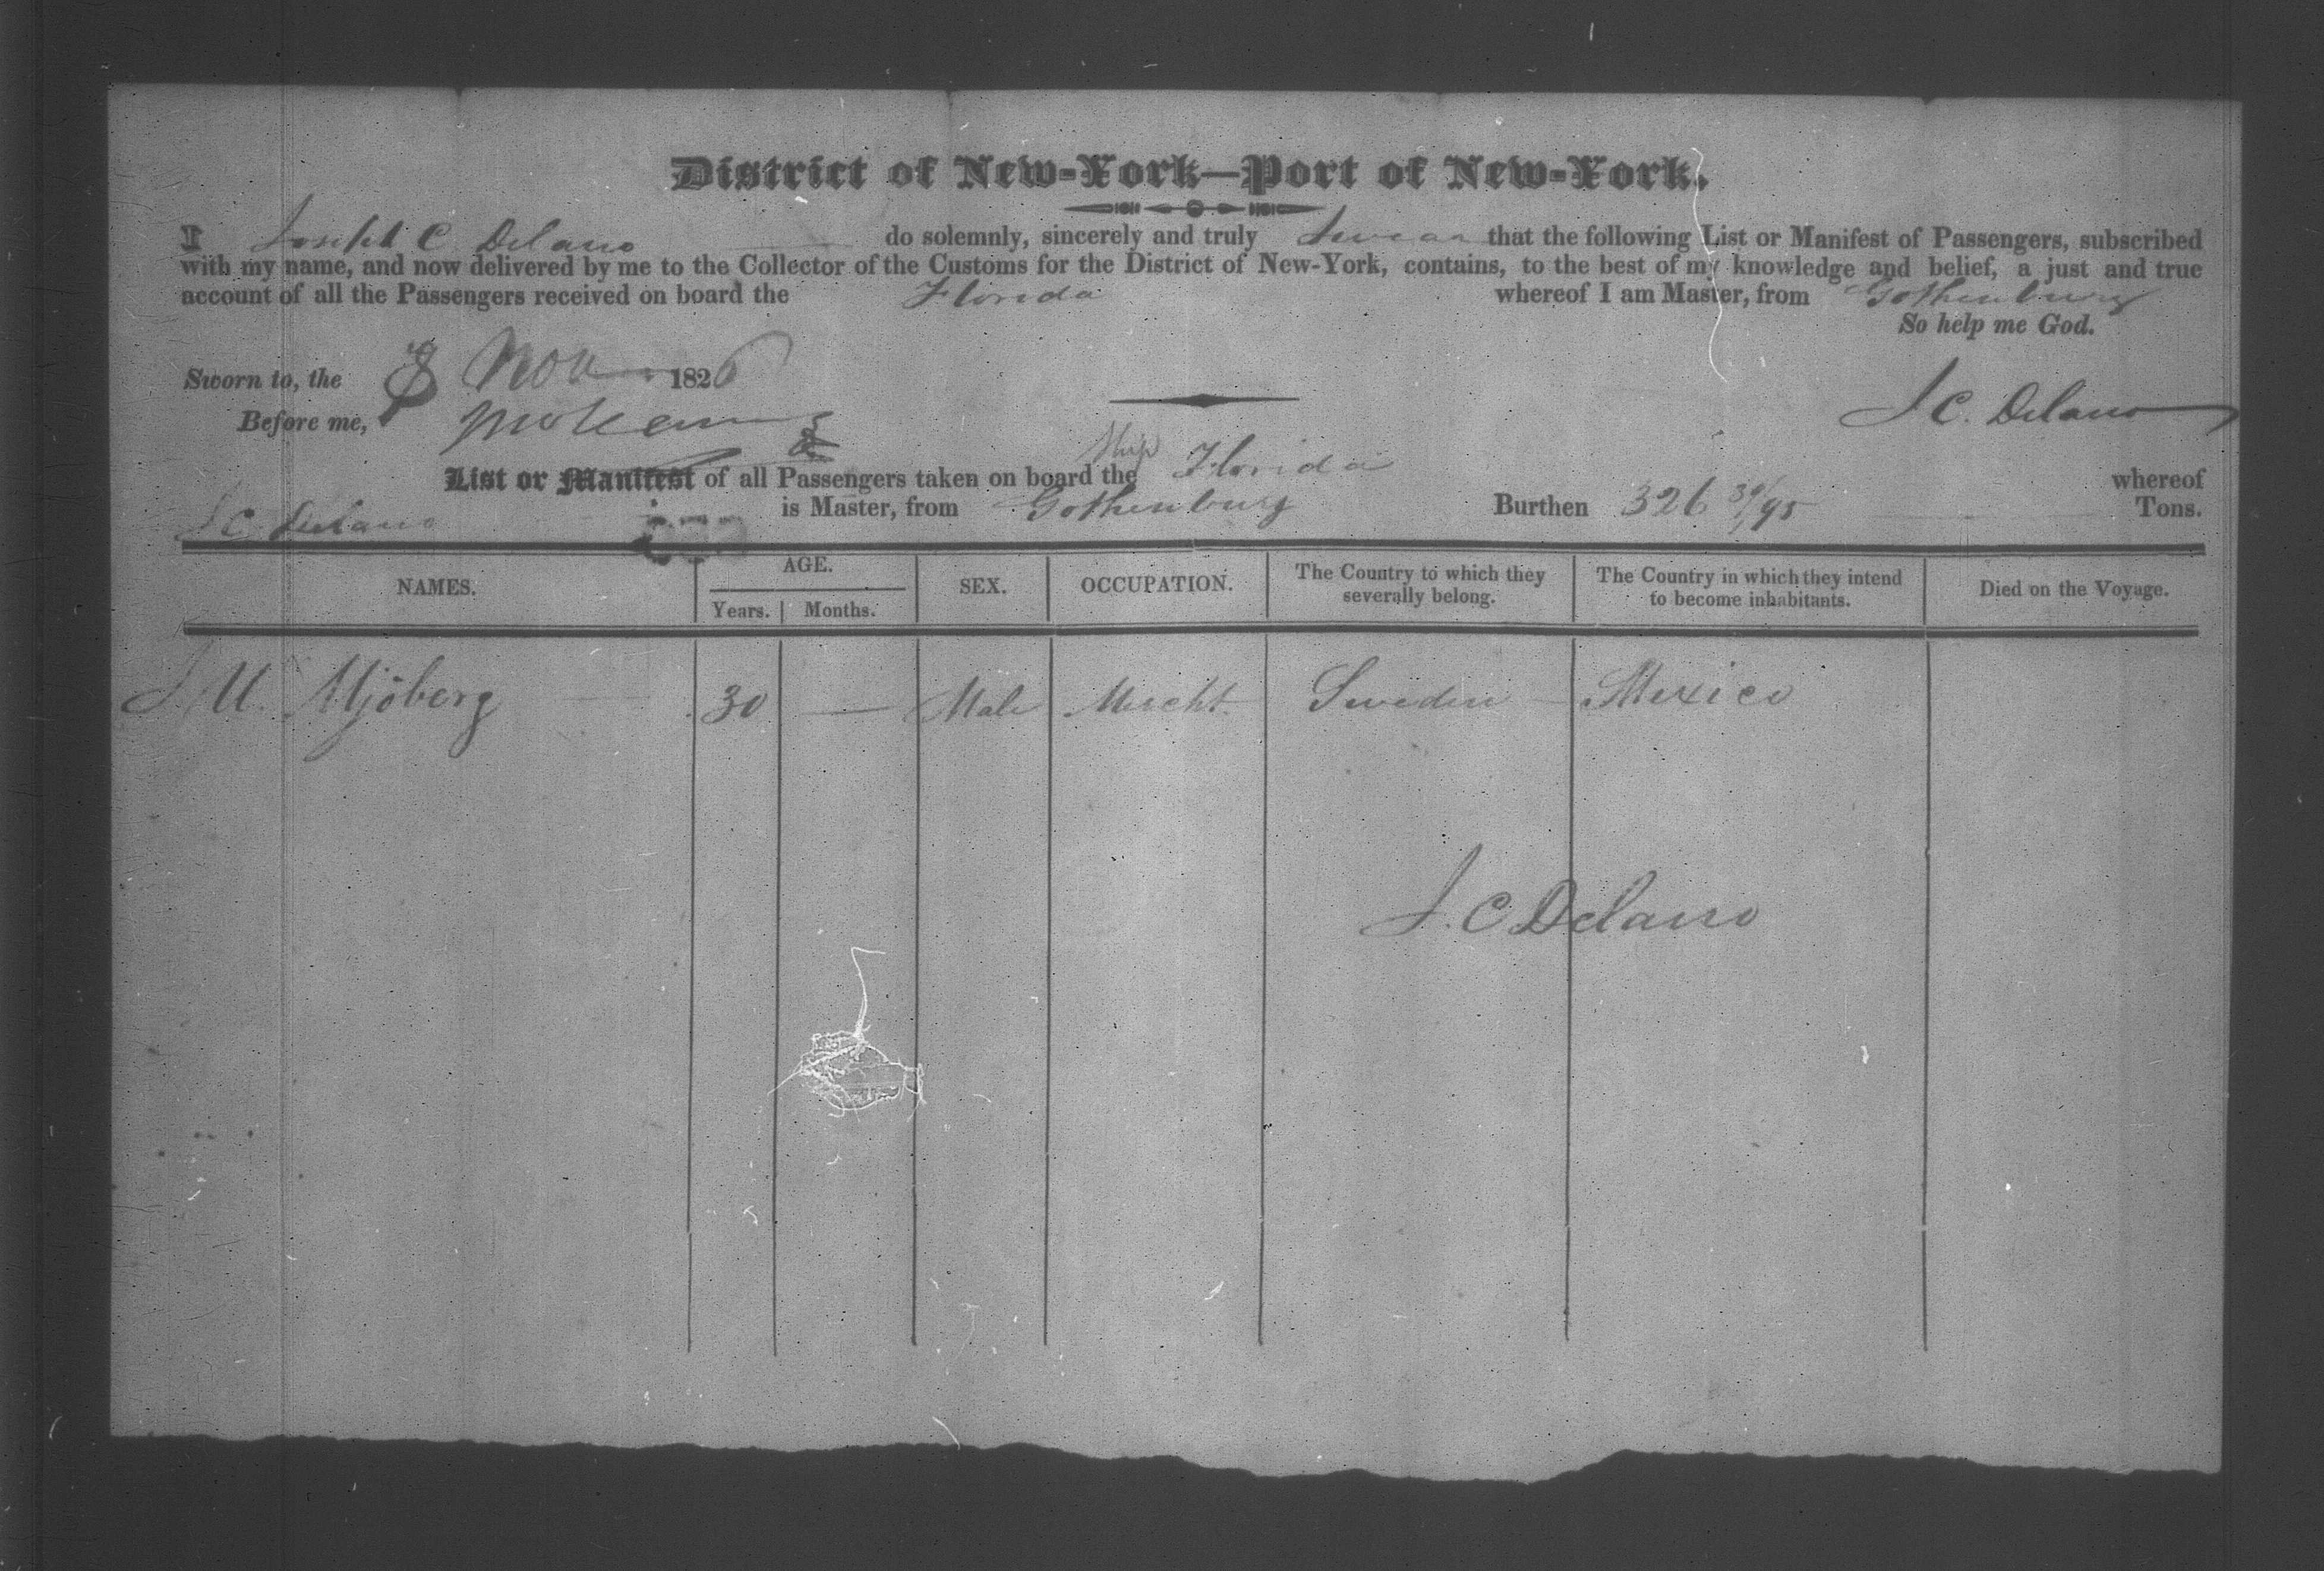 District of New-York—Port of New-York.
I Joseph C Delano do solemnly, sincerely and truly Swear that the following List or Manifest of Passengers, subscribed
with my name, and now delivered by me to the Collector of the Customs for the District of New-York, contains, to the best of my knowledge and belief, a just and true
account of all the Passengers received on board the Florida whereof I am Master, from Gothenburg
So help me God.
Sworn to, the 8 Nov 1826
J C. Delano
Before me,
List or Manifest of all Passengers taken on board the Ship Florida whereof
J C Delano is Master, from Gothenburg Burthen 326 39/95 Tons.
NAMES. AGE. Years. Months. SEX. OCCUPATION. The Country to which they severally belong. The Country in which they intend to become inhabitants. Died on the Voyage.
J. U. Mjöberg 30 — Male Mercht. Sweden Mexico
J. C Delano